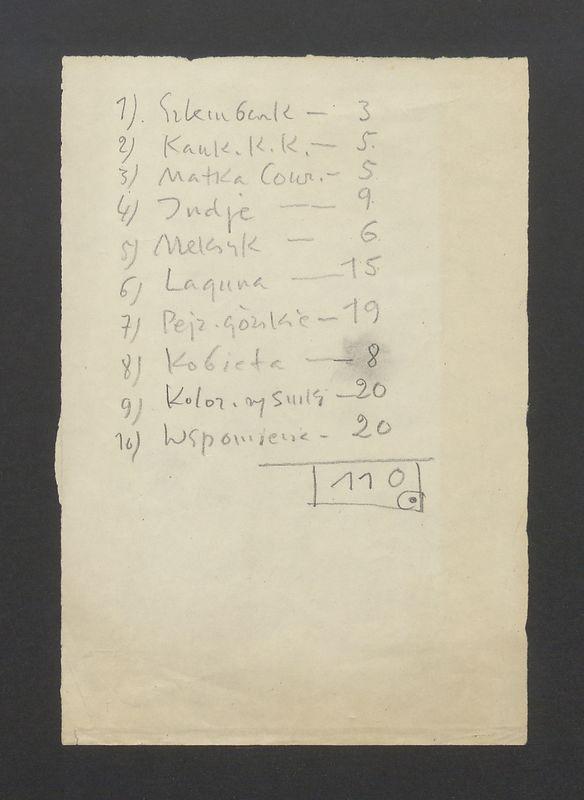 1). Szkeubank — 3
2) Kauk. K. K. — 5.
3) Matka Cour. - 5
4) Indje — 9.
5) Meksyk — 6.
6) Laguna — 15
7) Pejz. górskie — 19
8) Kobieta — 8
9) Kolor. rysunki — 20
10) Wspomienie - 20
110